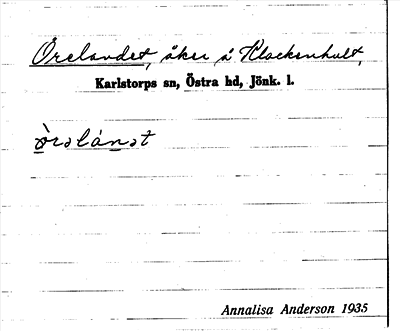 Örelandet, åker å Klockenhult,
Karlstorps sn, Östra hd, Jönk. l.
ö̀rəlánət
Annalisa Anderson 1935